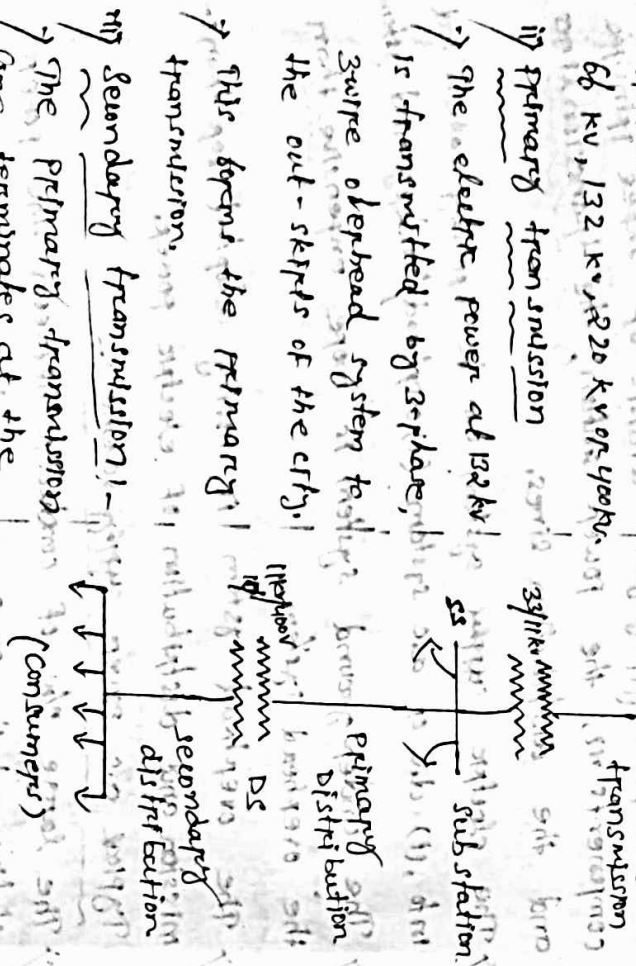 66 kv, 132 kv, 220 kv or 400kv.
ii) Primary transmission
-) The electric power at 132 kv
is transmitted by 3-phase,
3 wire overhead system to
the out-skirts of the city.
-) This forms the primary
transmission.
iii) Secondary transmission :-
-) The primary transmission
line terminates at the
transmission
33/11kv
SS
Substation
Primary
Distribution
11kv/400v
DS
secondary
distribution
(Consumers)